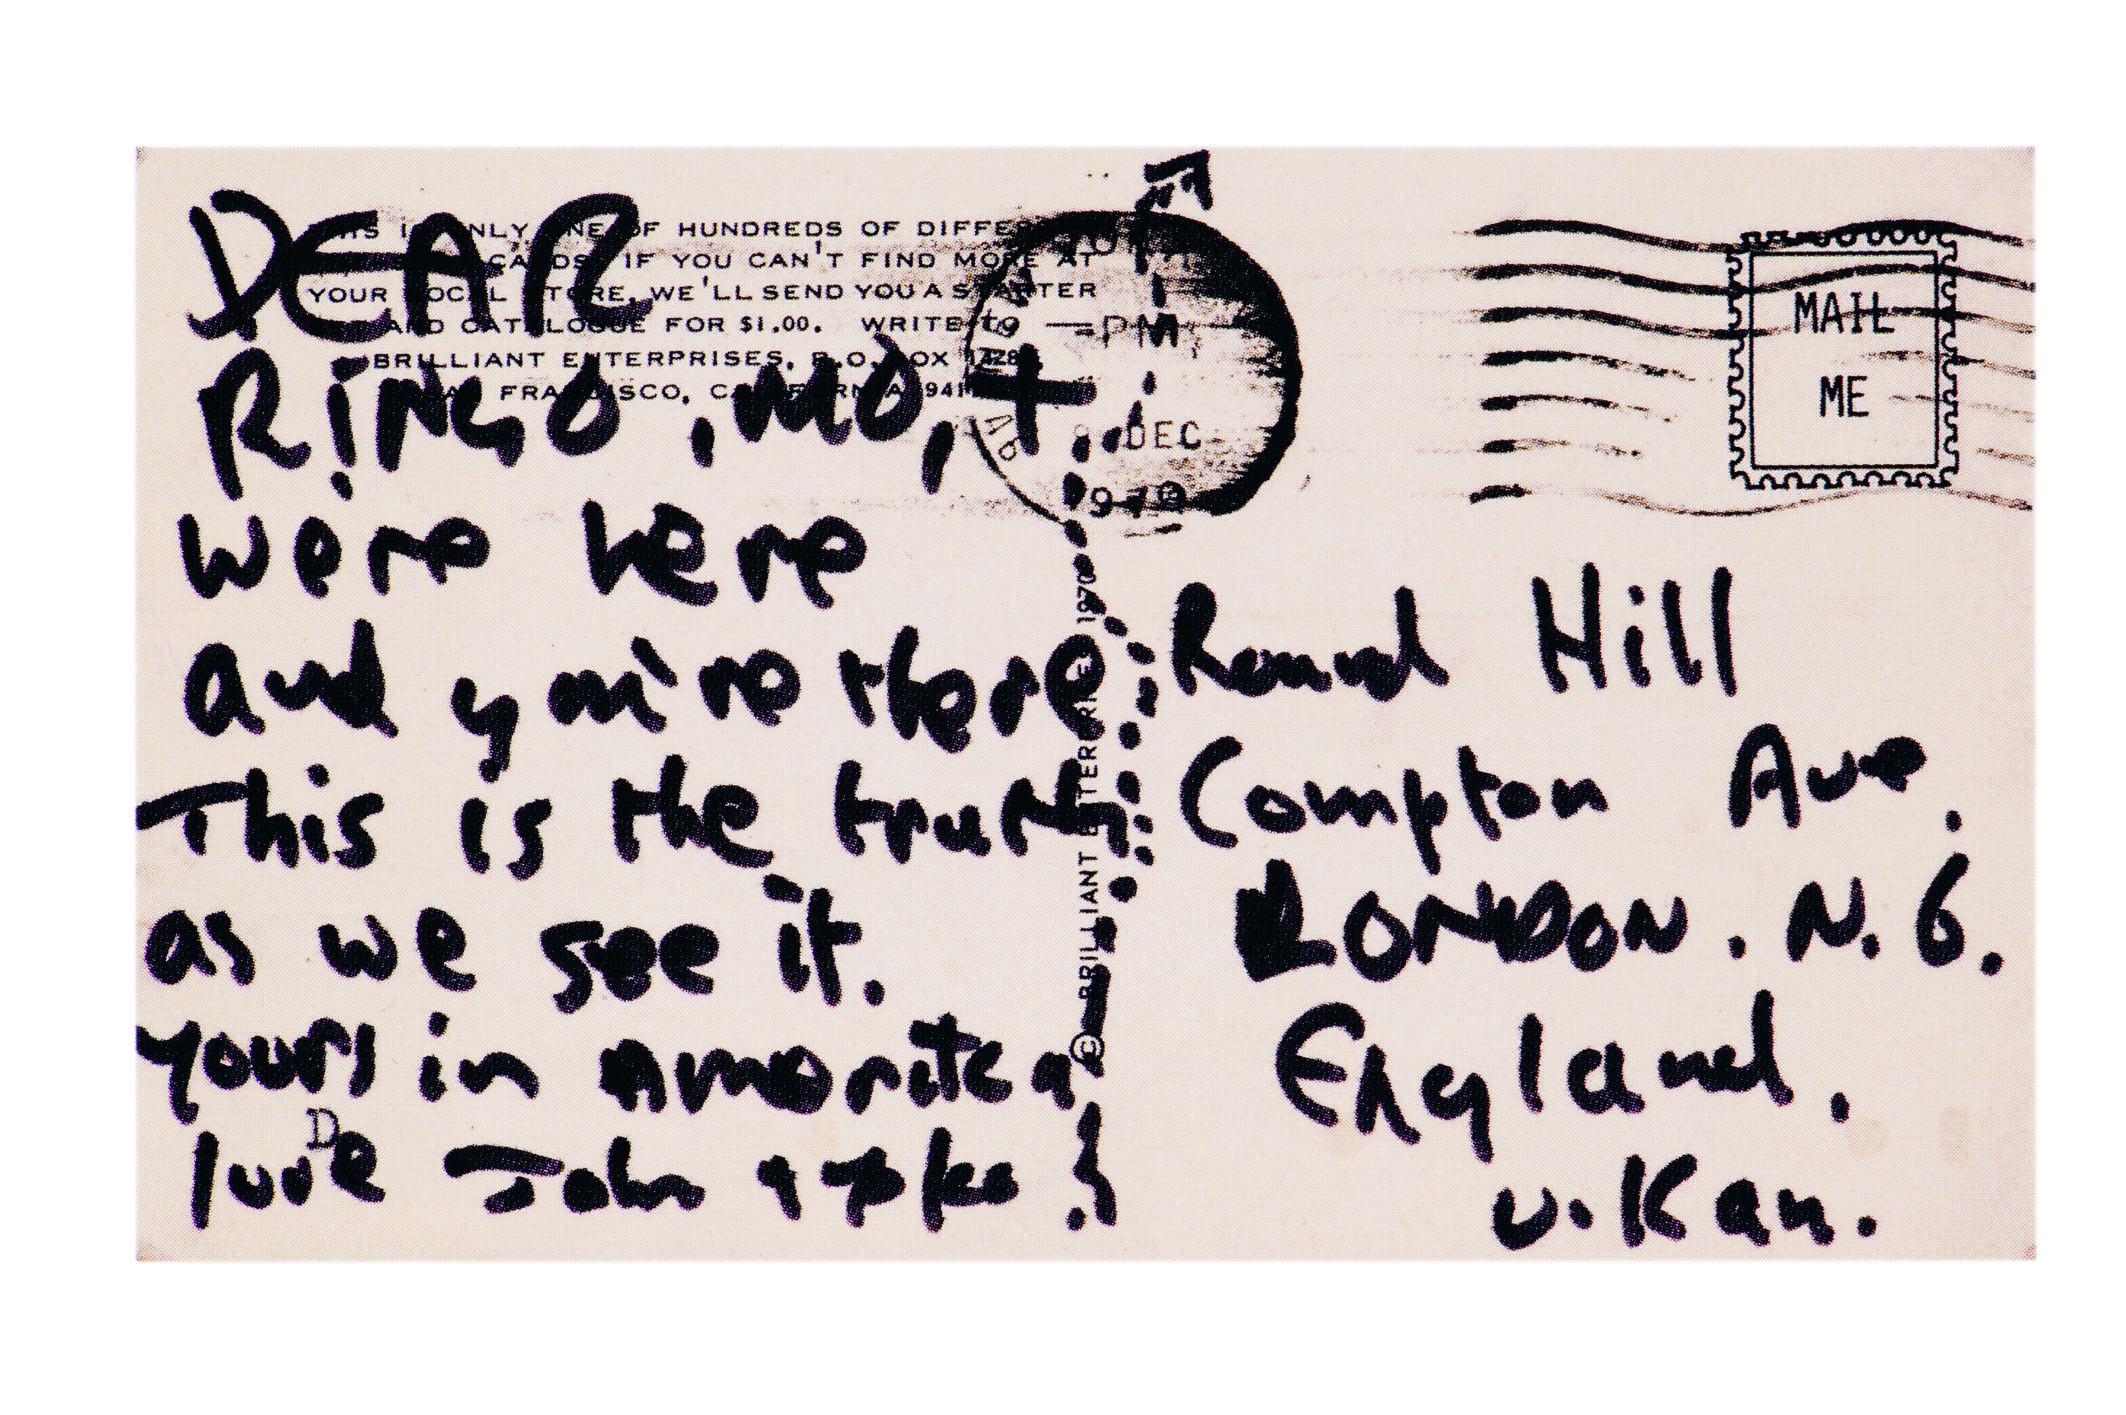 DEAR
RiNGO, MO, +
were here
and you're there
This is the truth
as we see it.
yours in amorica
love John + yoko
THIS IS ONLY ONE OF HUNDREDS OF DIFFERENT
CARDS. IF YOU CAN'T FIND MORE AT
YOUR LOCAL STORE, WE'LL SEND YOU A STARTER
AND CATALOGUE FOR $1.00. WRITE TO
BRILLIANT ENTERPRISES, P.O. BOX
SAN FRANCISCO, CALIFORNIA
© BRILLIANT ENTERPRISES 1970
PM
DEC
MAIL
ME
Round Hill
Compton Ave.
LONDON. N. 6.
England.
u.Kan.
D